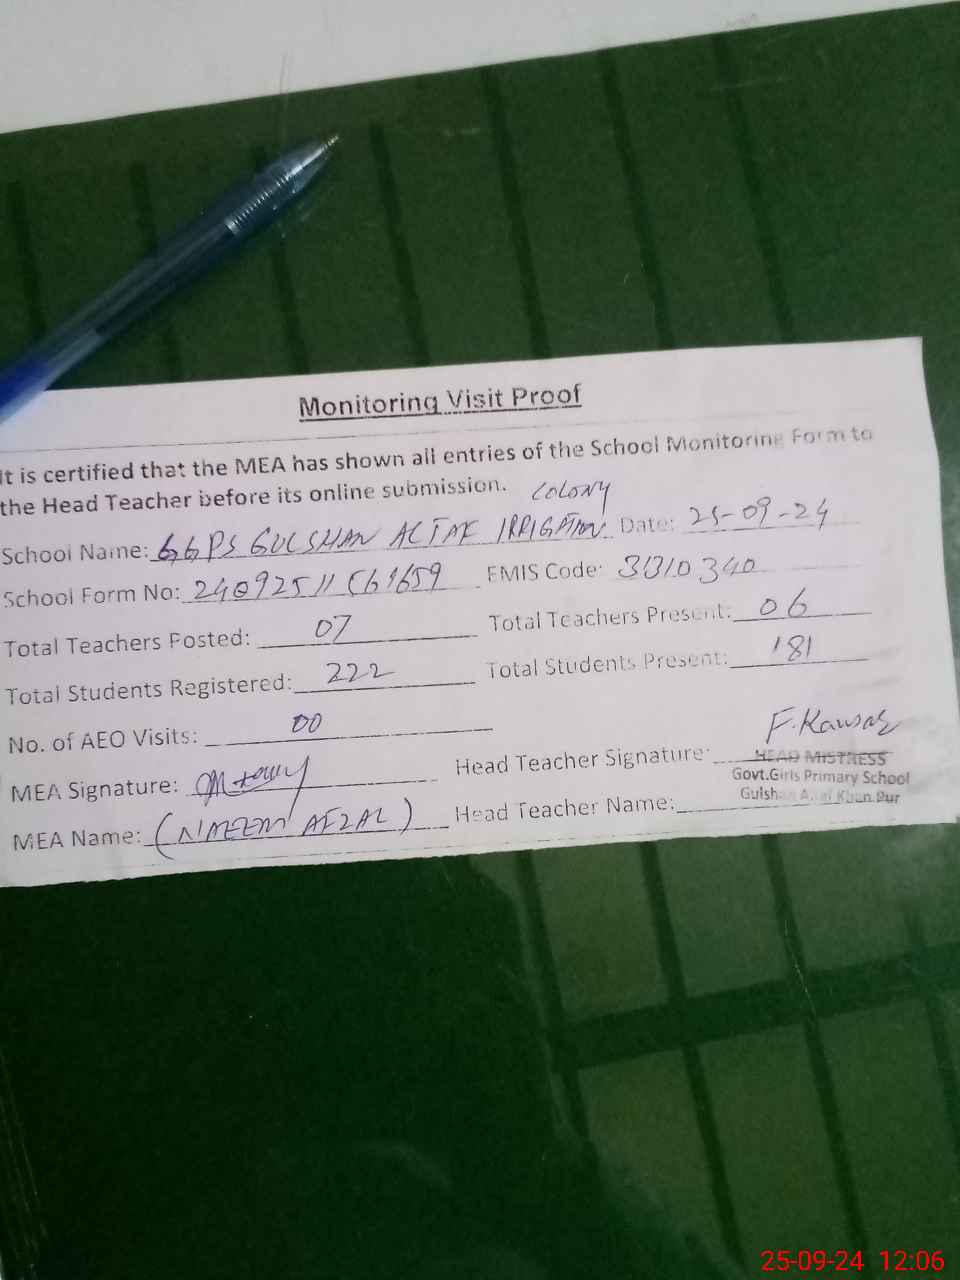 Monitoring Visit Proof
It is certified that the MEA has shown all entries of the School Monitoring Form to
the Head Teacher before its online submission.
COLONY
School Name: GGPS GULSHAN ALTAF IRRIGATION Date: 25-09-24
School Form No: EMIS Code: 31310340
Total Teachers Posted: 07 Total Teachers Present: 06
Total Students Registered: 222 Total Students Present: 181
No. of AEO Visits: 00
MEA Signature: Head Teacher Signature: F. Kawsar
HEAD MISTRESS
Govt.Girls Primary School
Gulshan Altaf Khan Pur
MEA Name: (NAEEM AFZAL) Head Teacher Name:
25-09-24 12:06